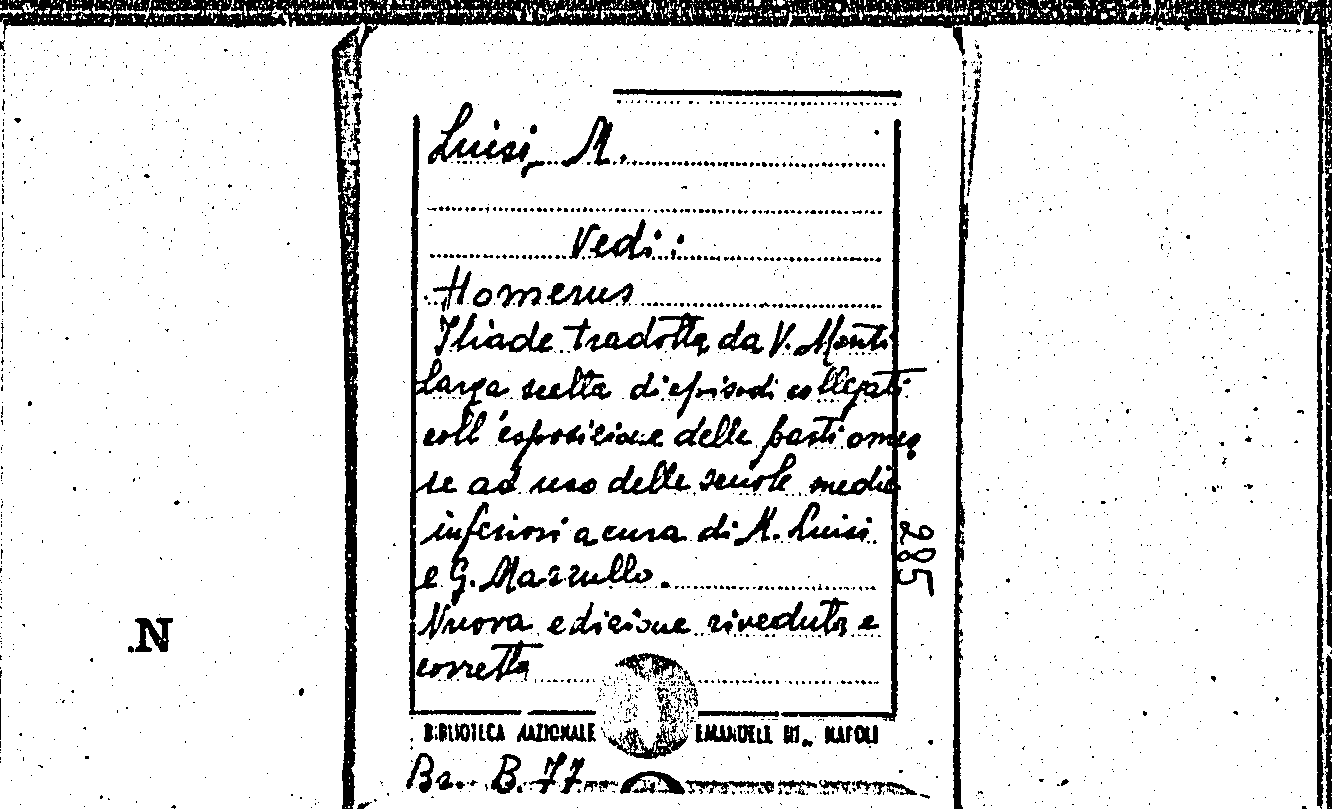 Luisi, M.
Vedi:
Homerus
Iliade tradotta da V. Monti
Larga scelta di episodi collegati
coll'esposizione delle parti omes
se ad uso delle scuole medie
inferiori a cura di M. Luisi
e G. Mazzullo.
Nuova edizione riveduta e
corretta
285
.N
BIBLIOTECA NAZIONALE EMANUELE III., NAPOLI
Br. B. 77